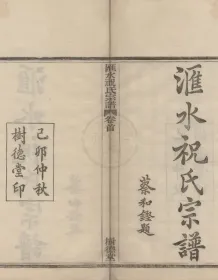 滙水祝氏宗譜
蔡和鏗題
滙水祝氏宗譜
卷首
樹德堂
己卯仲秋
樹德堂印